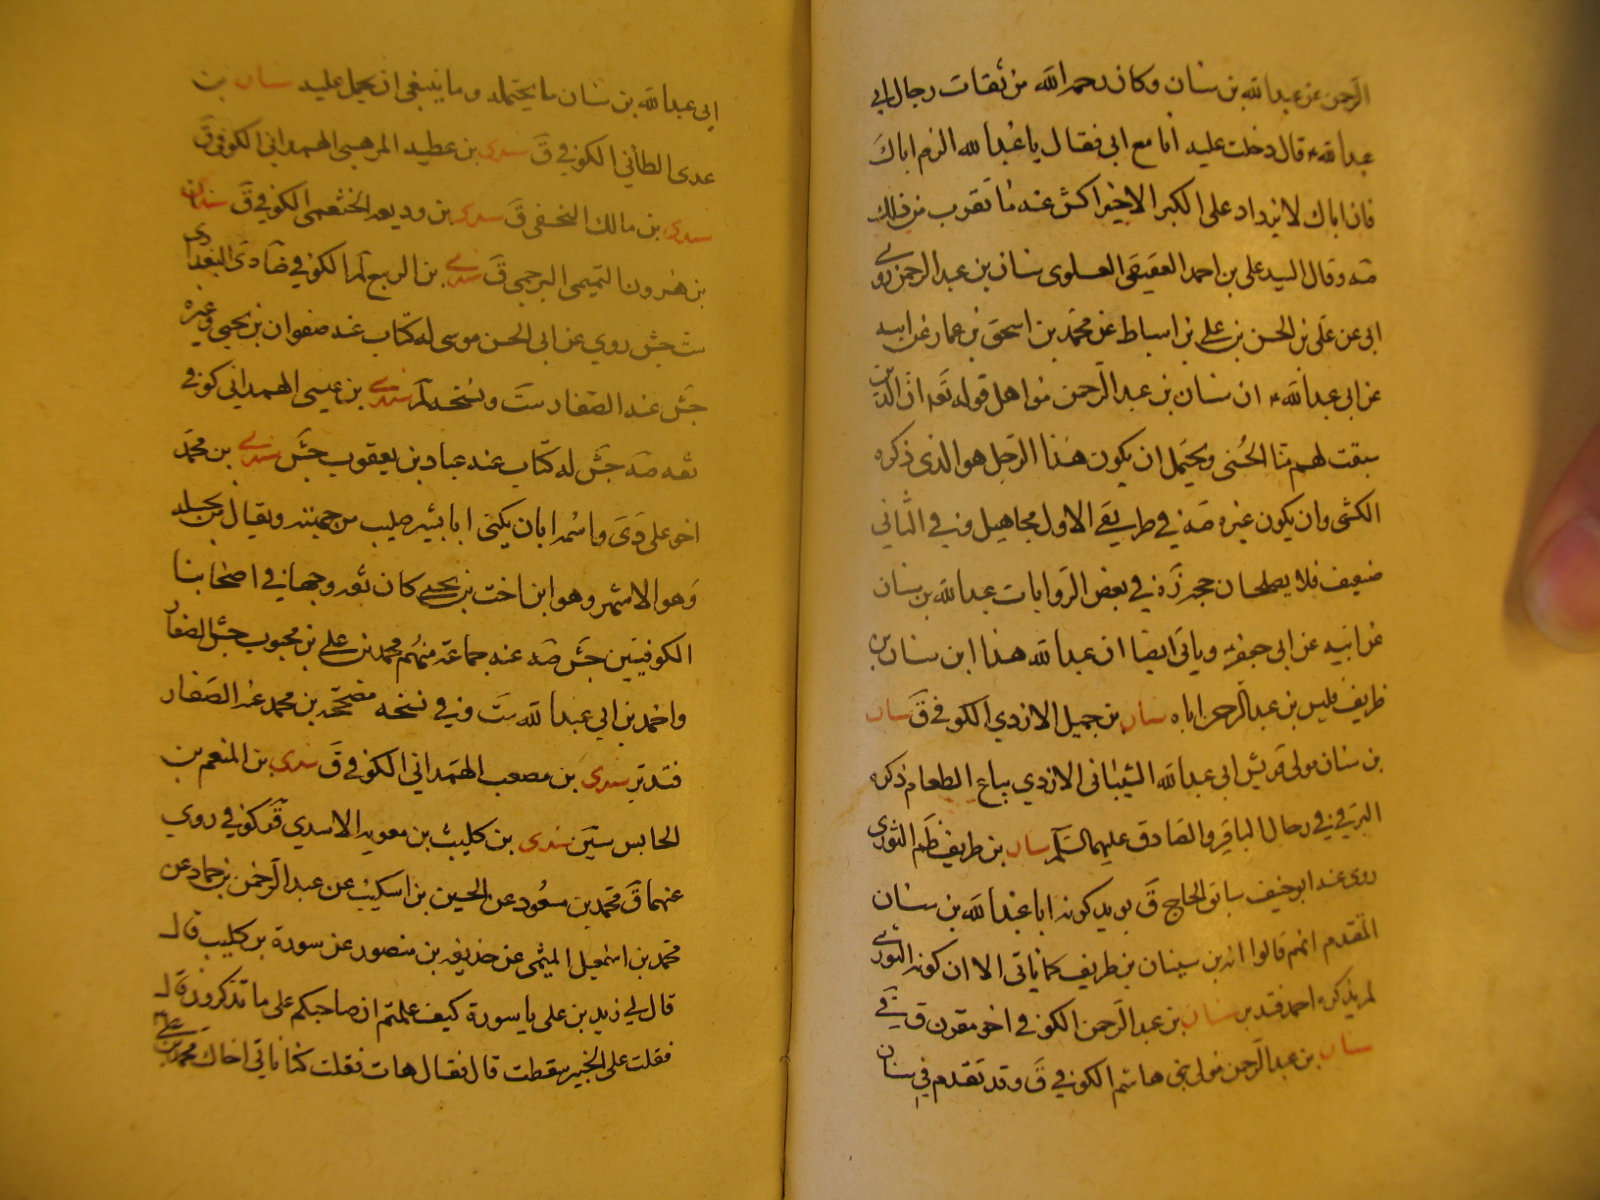 الرحمن عن عبد الله بن سنان وكان رحمه الله من ثقات رجال ابي
عبد الله ع قال دخلت عليه انا مع ابي فقال يا عبد الله الزم اباك
فان اباك لا يزداد على الكبر الا خيرا كش عنه ما تقرب من ذلك
صه وقال السيد علي بن احمد العقيقي العلوي سنان بن عبد الرحمن روى
ابي عن علي بن الحسن بن علي بن اسباط عن محمد بن اسحق بن عمار عن ابيه
عن ابي عبد الله ع ان سنان بن عبد الرحمن من اهل قوله تعه ان الذين
سبقت لهم منا الحسنى ويحتمل ان يكون هذا الرجل هو الذي ذكره
الكشي وان يكون غيره صه في طريقه الاول مجاهيل وفي الثاني
ضعيف فلا يصلحان حجة في بعض الروايات عبد الله بن سنان
عن ابيه عن ابي جعفر ع وياتي ايضا ان عبد الله هذا ابن سنان بن
ظريف فليس بن عبد الرحمن اباه سنان بن جميل الازدي الكوفي ق سنان
بن سنان مولى قريش ابي عبد الله الشيباني الازدي بياع الطعام ذكره
البرقي في رجال الباقر والصادق عليهما السلم سنان بن ظريف ظم الثوري
روى عنه ابو حنيف سابق الحاج ق يويد كونه ابا عبد الله بن سنان
المتقدم انهم قالوا انه بن سنان بن طريف كما ياتي الا ان كونه الثوري
لم يذكره احمد فتد بن سنان بن عبد الرحمن الكوفي اخو مقرن ق في
سنان بن عبد الرحمن مولى بني هاشم الكوفي ق وقد تقدم في سنان
ابي عبد الله بن سنان ما يحتمله وما ينبغي ان يحمل عليه سنان بن
عدى الطائي الكوفي ق سندى بن عطيه المرهبي الهمداني الكوفي ق
سندى بن مالك النخفي ق سندى بن وديعه الخثعمي الكوفي ق سندى
بن هرون التميمي البرجمي ق سندي بن الربيع لم الكوفي ضا دى البغدادي
ست جش روي عن ابي الحسن موسى له كتاب عنه صفوان بن يحيى وغيره
جش عنه الصفار ست ونسخه لم سندي بن عيسى الهمداني كوفي
ثقه صه جش له كتاب عنه عباد بن يعقوب جش سندي بن محمد
اخو علي دى واسمه ابان يكنى ابا بشر صليب من جهينه ويقال من بجيله
وهو الاشهر وهو ابن اخت بن يحيى كان ثقه وجها في اصحابنا
الكوفيين جش صه عنه جماعة منهم محمد بن علي بن محبوب جش الصفار
واحمد بن ابي عبد الله ست وفي نسخه مصححه بن محمد عنه الصفار
فتدبر سندى بن مصعب الهمداني الكوفي ق سندى بن المنعم بن
الحابس سين سندى بن كليب بن معويه الاسدي ق كوفي روي
عنهما ق محمد بن مسعود عن الحسين بن اسكيب عن عبد الرحمن بن حماد عن
محمد بن اسمعيل الميثمي عن حذيفه بن منصور عن سورة بن كليب قال
قال لي زيد بن علي يا سورة كيف علمتم ان صاحبكم على ما تذكرون قال
فقلت على الخبير سقطت قال فقال هات فقلت كنا ناتي اخاك محمد بن علي ع